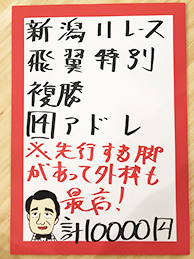 新潟11レース
飛翼特別
複勝
14アドレ
※先行する脚
があって外枠も
最高!
計10000円